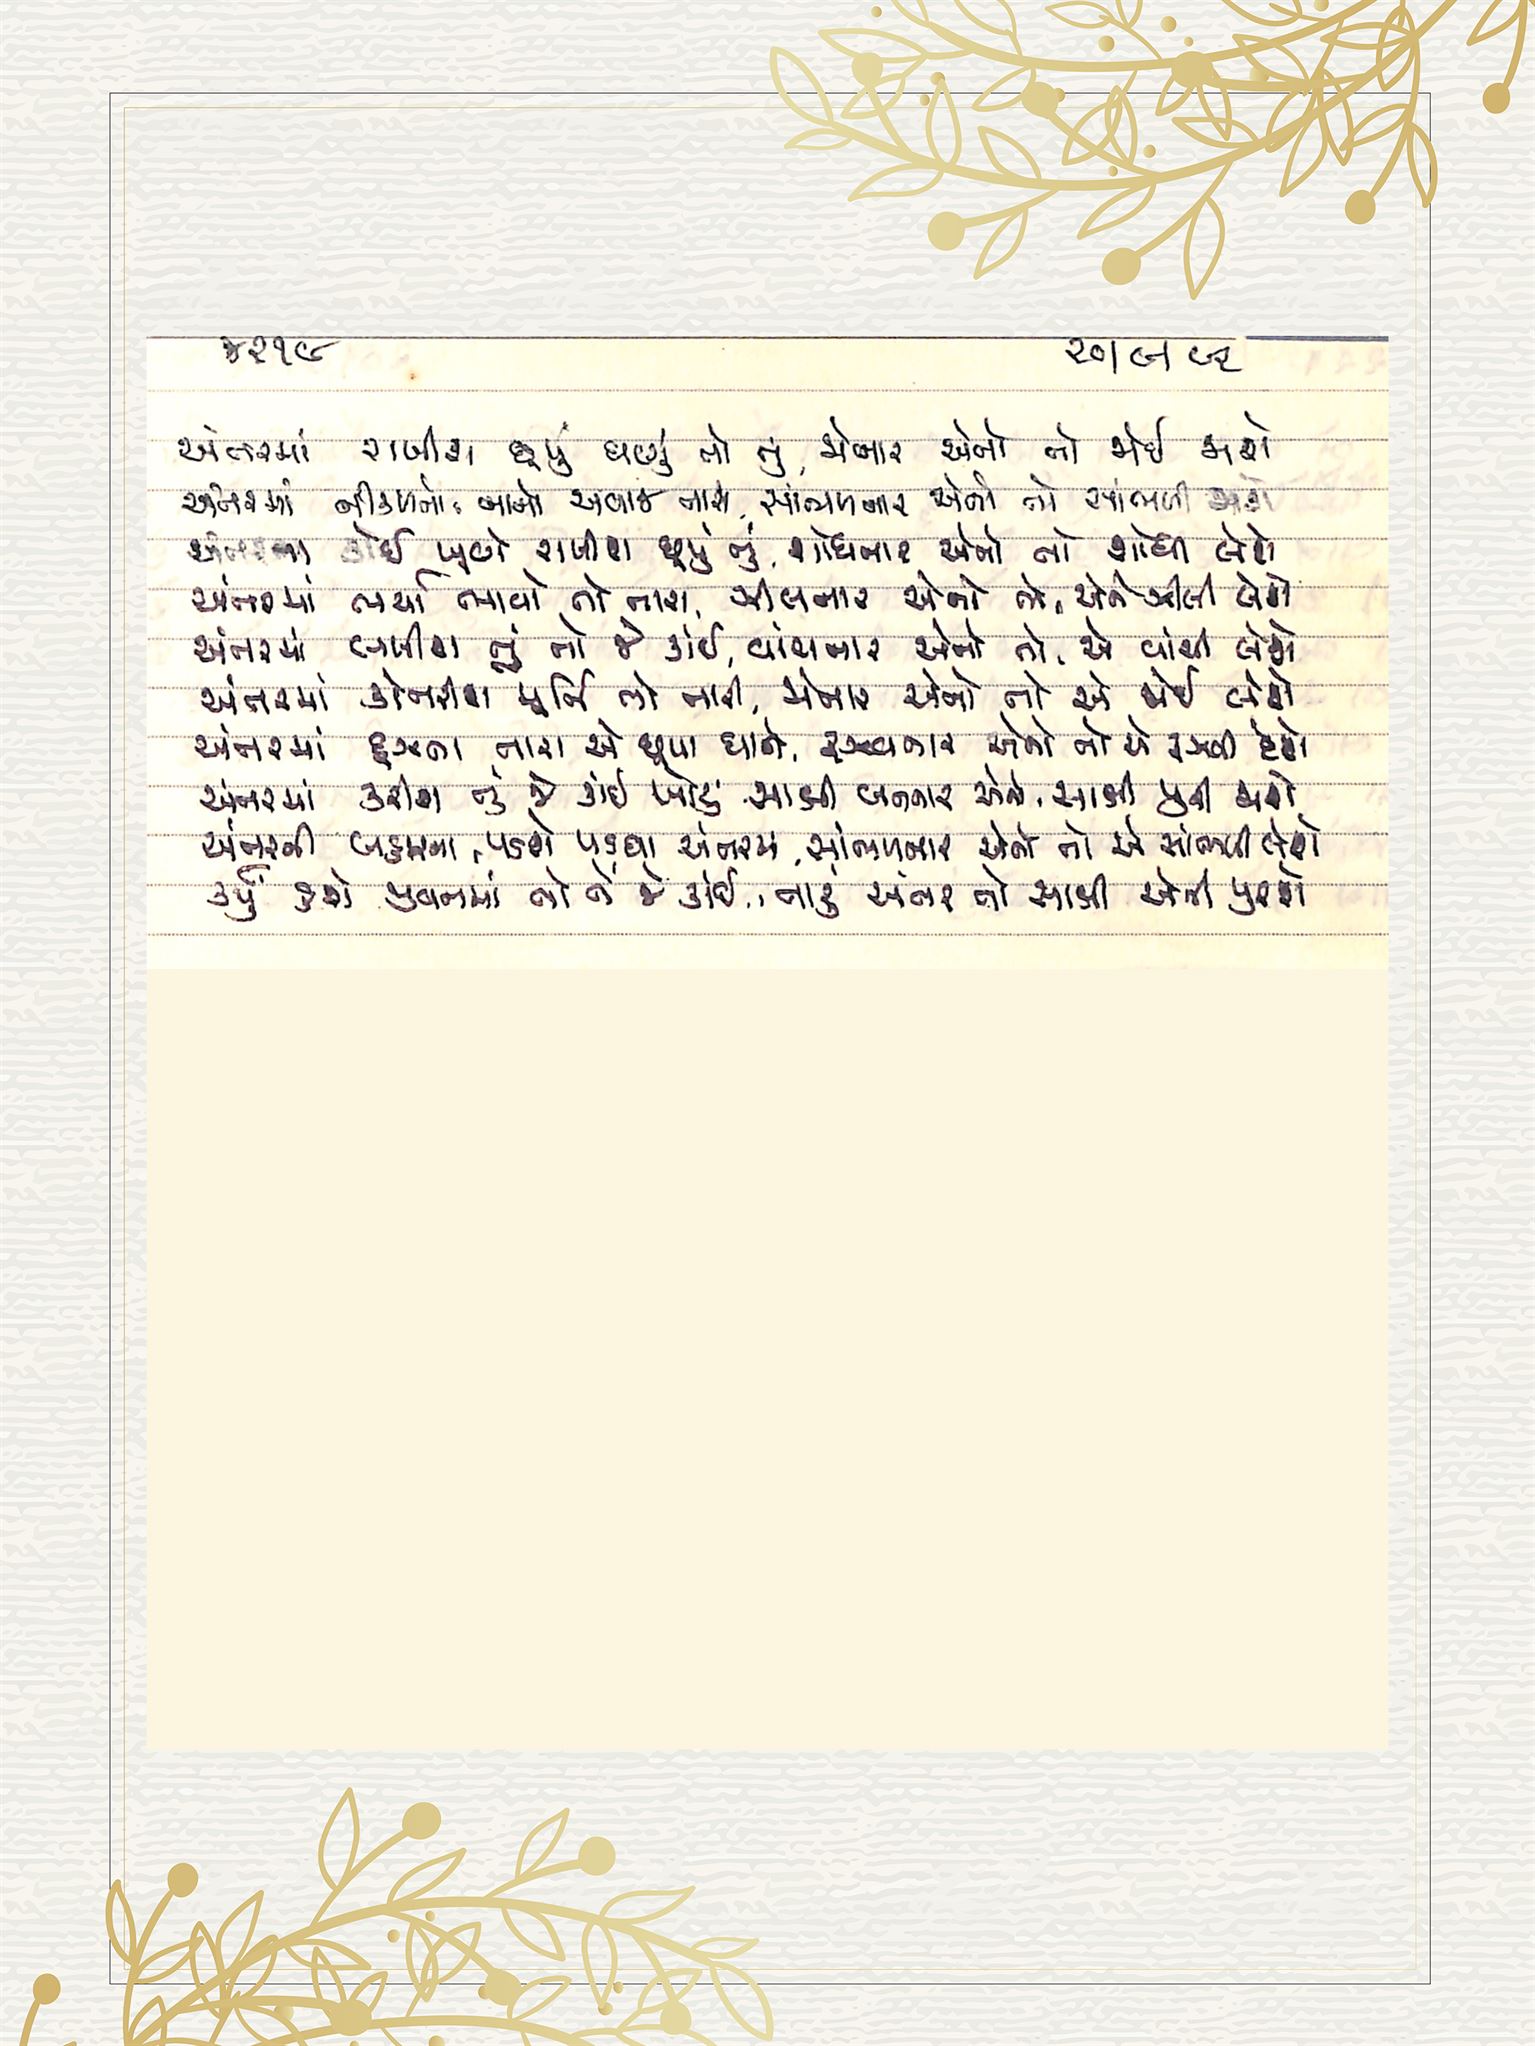 ૪૨૧૯ ૨૦/૯/૯૨
અંતરમાં રાખીશ છૂપું ઘણું તો તું, જોનાર એનો તો જોઈ જાશે
અંતરમાં નીકળતો નાનો અવાજ તારો, સાંભળનાર એનો તો સાંભળી જાશે
અંતરના કોઈ ખૂણે રાખીશ છૂપું તું, શોધનાર એનો તો શોધી લેશે
અંતરમાં ભર્યા ભાવો તો તારા, ઝીલનાર એનો તો, એને ઝીલી લેશે
અંતરમાં લખીશ તું તો જે કાંઈ, વાંચનાર એનો તો, એ વાંચી લેશે
અંતરમાં કોતરીશ મૂર્તિ તો તારી, જોનાર એનો તો એ જોઈ લેશે
અંતરમાં દૂઝતા તારા એ છૂપા ઘાને, રૂઝવનાર એનો તો એ રૂઝવી દેશે
અંતરમાં કરીશ તું જે કાંઈ ખોટું સાક્ષી બનનાર એને, સાક્ષી પુરી જાશે
અંતરની પડશે પડઘા અંતરમાં, સાંભળનાર એને તો એ સાંભળી લેશે
કર્યું હશે જીવનમાં તો તેં જે કાંઈ, તારું અંતર તો સાક્ષી એની પુરશે